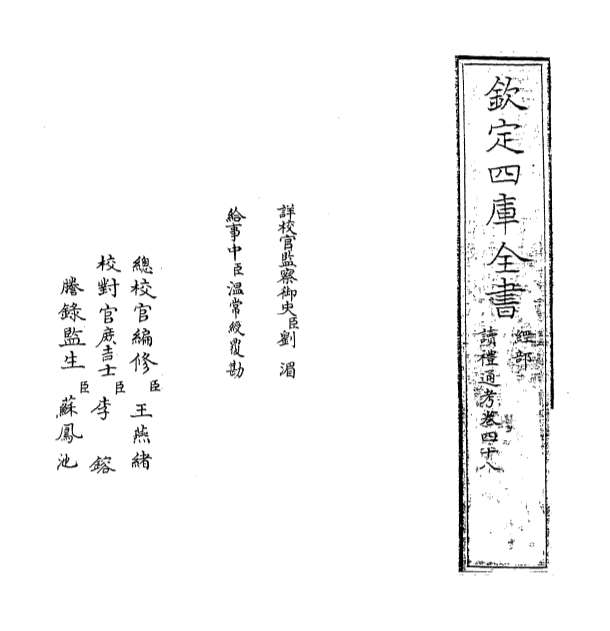 欽定四庫全書
經部
讀禮通考卷四十八
詳校官監察御史臣劉湄
給事中臣溫常綬覆勘
總校官編修臣王燕緒
校對官庶吉士臣李鎔
謄錄監生臣蘇鳳池